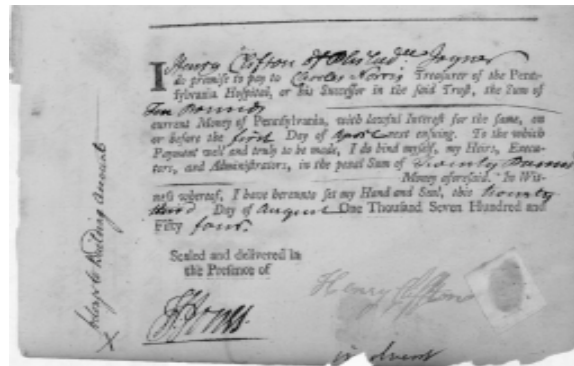 I Henry Clifton of Philad. Joyner
do promise to pay to Charles Norris Treasurer of the Penn-
sylvania Hospital, or his Successor in the said Trust, the Sum of
Ten Pounds
current Money of Pennsylvania, with lawful Interest for the same, on
or before the first Day of April next ensuing. To the which
Payment well and truly to be made, I do bind myself, my Heirs, Execu-
tors, and Administrators, in the penal Sum of Twenty Pounds
Money aforesaid. In Wit-
ness whereof, I have hereunto set my Hand and Seal, this twenty
third Day of August One Thousand Seven Hundred and
Fifty four.
Sealed and delivered in
the Presence of
Henry Clifton
Jones
insolvent
Building Account